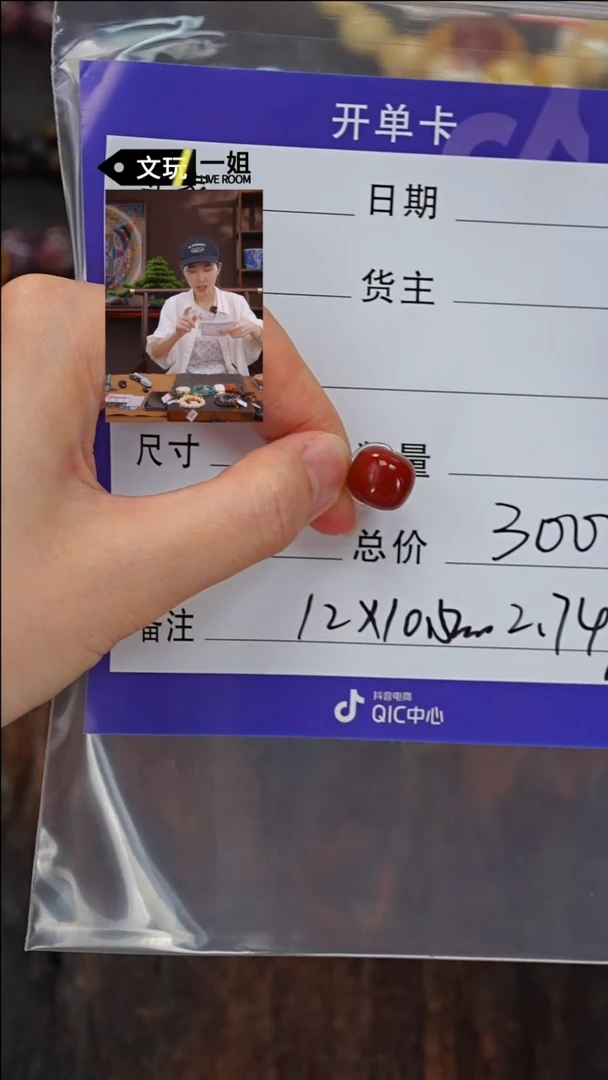 开单卡
文玩 一姐
LIVE ROOM
日期
货主
尺寸 量
总价 300
备注 12X10.5mm 2.74
抖音电商
QIC中心